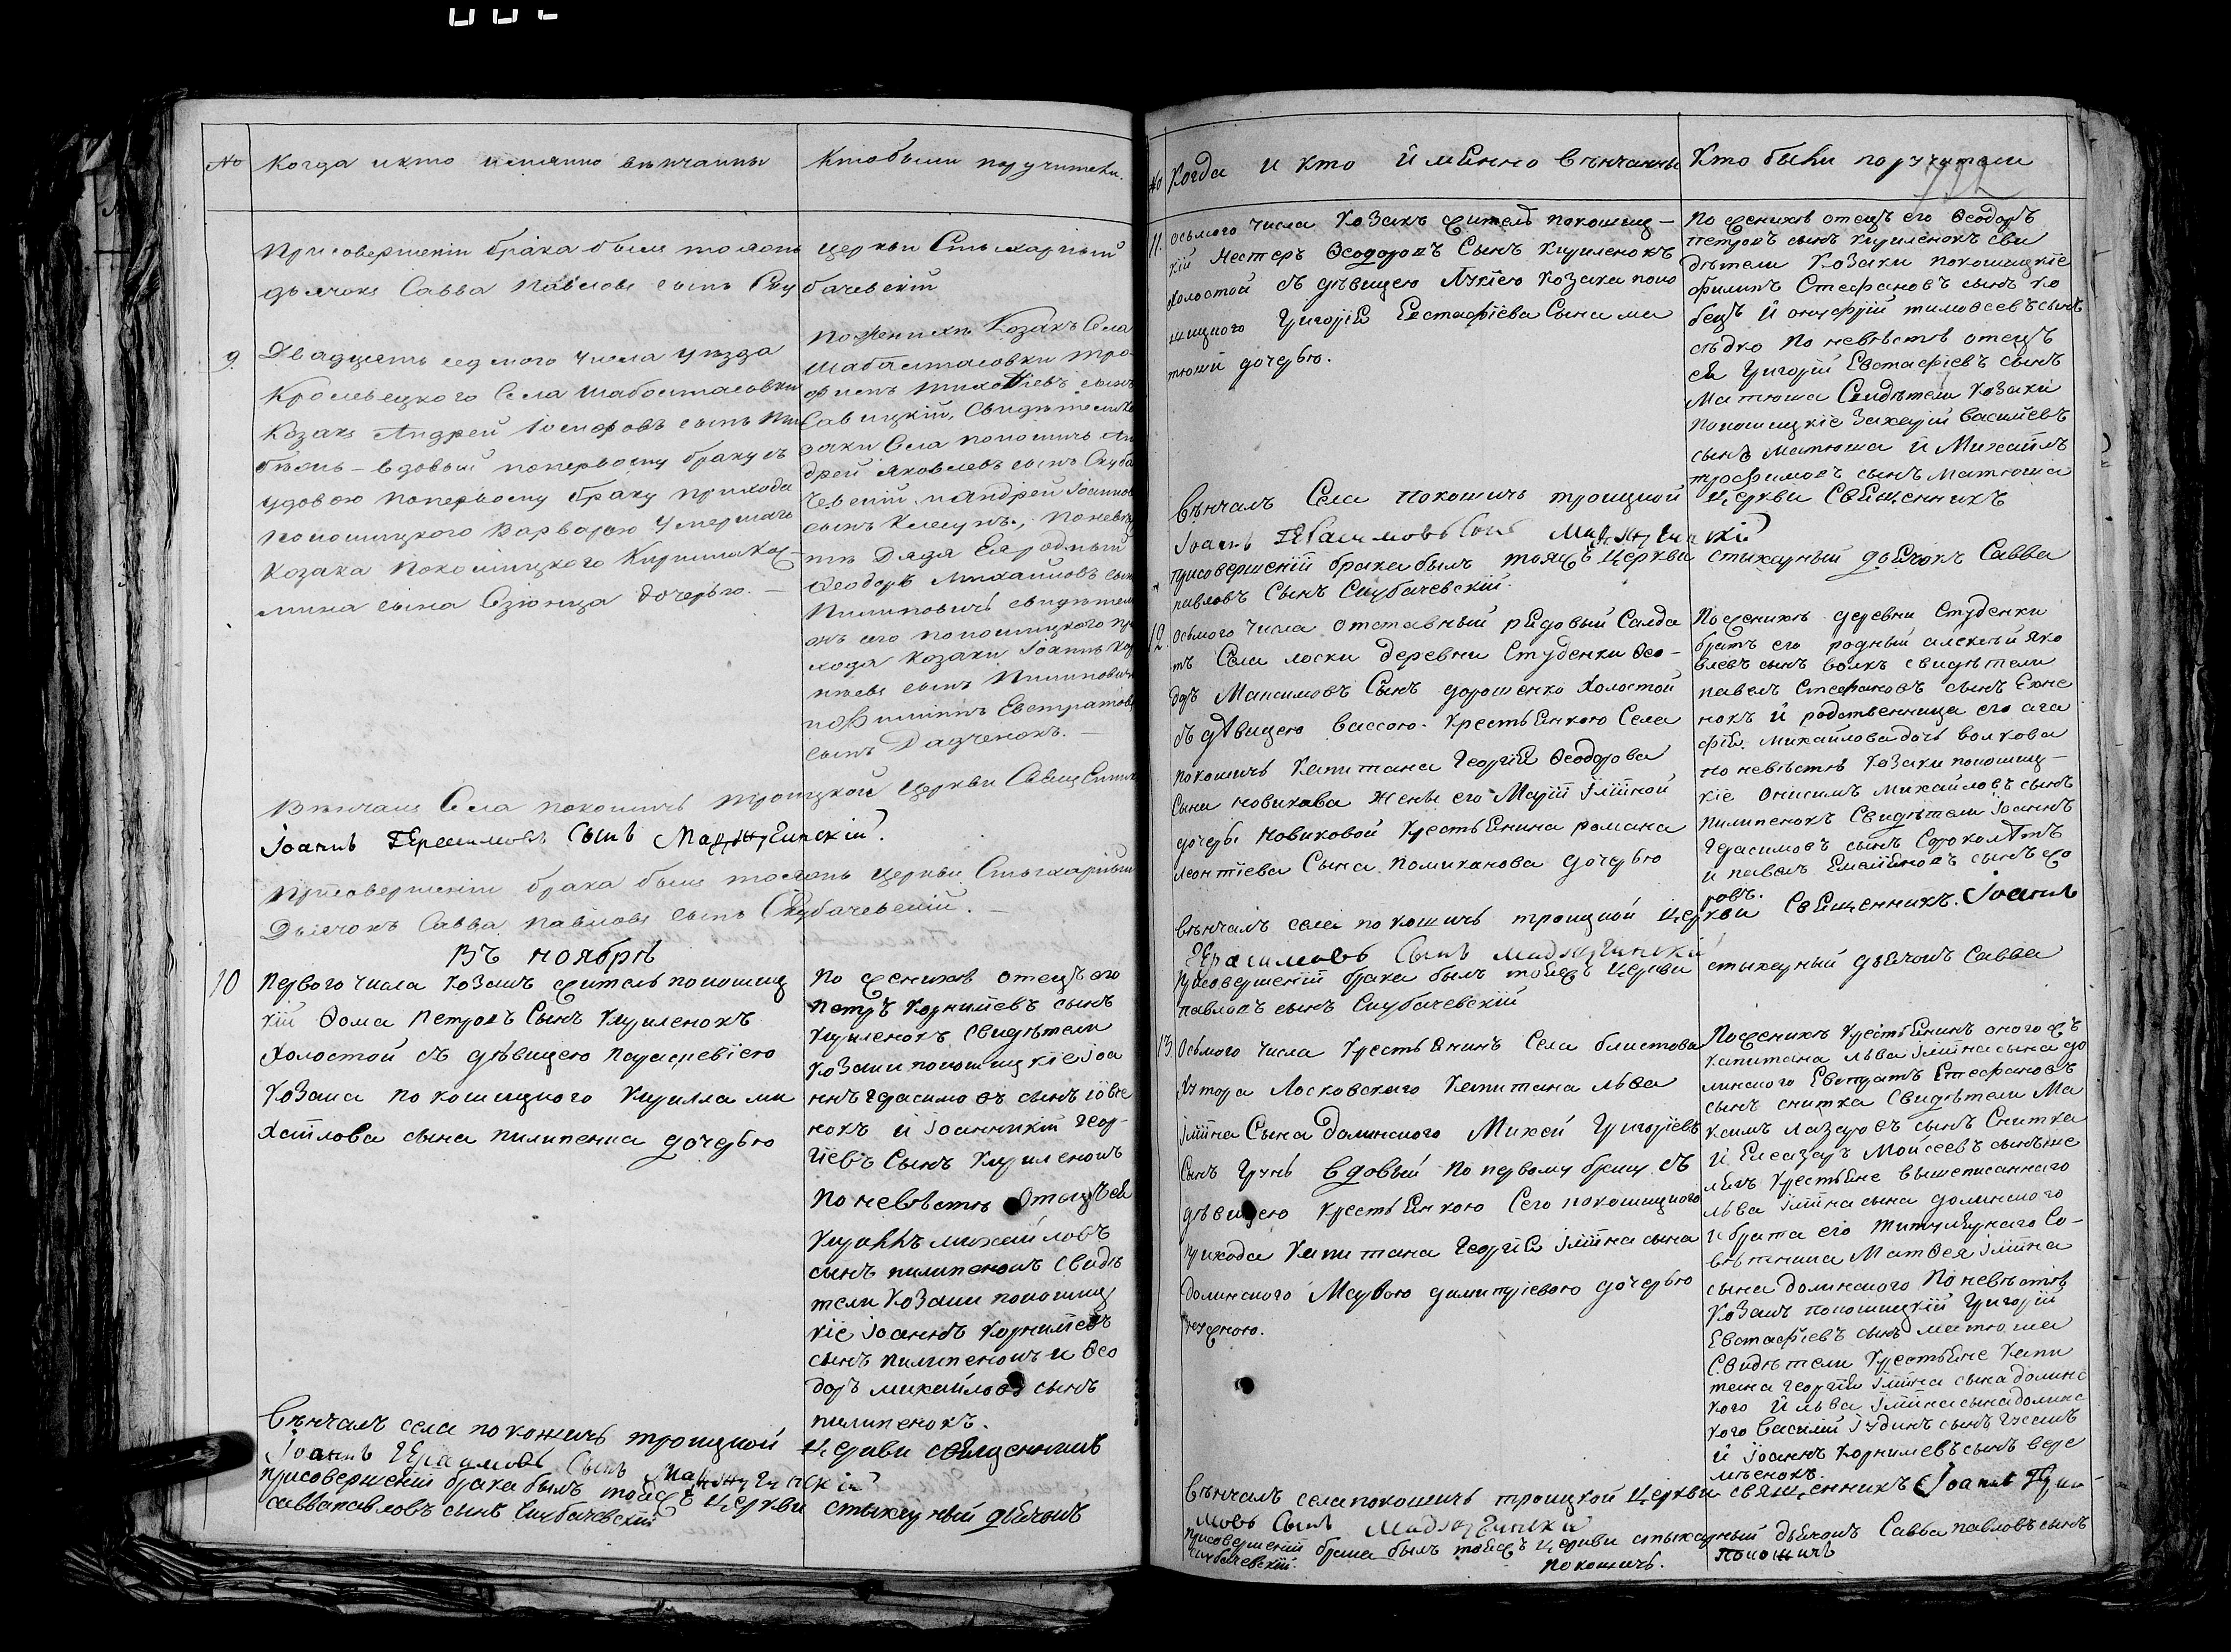 № Когда и кто именно венчанны
Кто были поручители.
При совершеніи брака былъ тояжъ церкви Стыхарный
дьячокъ Савва Павловъ сынъ Скубачевскій
9. Двадцать седмого числа уезда
Кролевецкого Села Шабалтасовки
Козакъ Андрей Іосифовъ сынъ
вдовый поперьвому браку съ
удовою поперьвому браку прихода
Покошицкого Варварою умершаго
Козака Покошицкого Кирила
мина сына Сзіонца дочерью.
По женихѣ Козакъ Села
Шабалтасовки Тро
фимъ сынъ
Савицкій, Свидѣтели Ко
заки Села Покошичъ Ан
дрей Яковлевъ сынъ Скуба
чевскій и Андрей Іоаннов
сынъ по невѣс
тѣ Дядя Ея родный
Ѳеодоръ Михайловъ сын
Пилиповичъ свидѣтели
онъ его Покошицкого при
хода Козаки Іоаннъ Кор
нѣевъ сынъ Пилипович
и Филиппъ Евстратов
сынъ Дадченокъ.
Вѣнчалъ Села Покошичъ Троицкой Церкви Священник
Іоаннъ Герасимовъ Сынъ
При совершеніи брака былъ тояжъ Церкви Стыхарный
Дьячокъ Савва Павловъ сынъ Скубачевскій.
Въ ноябрѣ
10 Первого числа Козакъ житель покошиц
кій Ѳома Петровъ Сынъ Кириленокъ
Холостой съ дѣвицею Параскевіею
Козака покошицкого Кирилла Ми
хайлова сына Пилипенка дочерью
По женихѣ отецъ его
Петръ Корниліевъ сынъ
Кириленокъ свидѣтели
Козаки покошицкіе Іоа
ннъ Герасимовъ сынъ
нокъ и Іоанникій Геор-
гіевъ Сынъ Кириленокъ
По невѣстѣ Отецъ ея
Кириллъ Михайловъ
сынъ Пилипенокъ свидѣ
тели Козаки покошиц
кіе Іоаннъ Корниліевъ
сынъ Пилипенокъ и Ѳео
доръ Михайловъ сынъ
Пилипенокъ.
Вѣнчалъ села покошичъ троицкой Церкви священникъ
Іоаннъ Герасимовъ Сынъ
При совершеніи брака былъ тояжъ Церкви стыхарный дьячокъ
Савва Павловъ сынъ Скубачевскій
№ Когда и кто именно вѣнчанны
Кто были поручители
11. Осьмого числа Козакъ житель покошиц-
кій Нестеръ Ѳеодоровъ Сынъ Кириленокъ
Холостой съ дѣвицею Лукіею Козака поко
шицкого Григорія Евстафіева Сына Ма
тюши дочерью.
По женихѣ отецъ его Ѳеодоръ
Петровъ сынъ Кириленокъ сви
дѣтели Козаки покошицкіе
Филипъ Стефановъ сынъ Ко
бецъ и Онуфрій Тимоѳеевъ сынъ
Сѣдко По невѣстѣ отецъ
ея Григорій Евстафіевъ сынъ
Матюша Свидѣтели Козаки
Покошицкіе Захарій Василіевъ
сынъ Матюша и Михаилъ
Трофимовъ сынъ Матюша
Вѣнчалъ Села Покошичъ троицкой Церкви Священникъ
Іоаннъ Герасимовъ Сынъ
При совершеніи брака былъ тояжъ Церкви стыхарный дьячокъ Савва
Павловъ Сынъ Скубачевскій.
12. Осьмого числа отставный рядовый Салда
тъ Села Лоски деревни Студенки Ѳео-
доръ Максимовъ Сынъ Дорошенко Холостой
съ дѣвицею Вассою Крестьянкою Села
Покошичъ Капитана Георгія Ѳеодорова
Сына Новикова Жены его Маріи Іліиной
дочеры Новиковой Крестьянина Романа
Леонтіева Сына Помиканова дочерью
По женихѣ деревни Студенки
братъ его родный Алексѣй Яко
влевъ сынъ Волкъ свидѣтели
Павелъ Стефановъ сынъ
нокъ и родственница его Ага
фія Михайлова дочь Волкова
По невѣстѣ Козаки покошиц-
кіе Онисимъ Михайловъ сынъ
Пилипенокъ Свидѣтели Іоаннъ
Герасимовъ сынъ Сороколѣтъ
и Павелъ Емеліяновъ сынъ
ровъ.
Вѣнчалъ села покошичъ троицкой церкви Священникъ. Іоаннъ
Герасимовъ Сынъ
При совершеніи брака былъ тояжъ Церкви стыхарный дьячокъ Савва
Павловъ сынъ Скубачевскій
13. Осьмого числа Крестьянинъ Села Блистова
Хутора Лосковского Капитана Льва
Іліина Сына Долинского Михей Григоріевъ
Сынъ вдовый по первому браку съ
дѣвицею Крестьянкою Сего покошицкого
прихода Капитана Георгія Іліина сына
Долинского Марѳою Димитріевою дочерью
По женихѣ Крестьянинъ оного жъ
Капитана Льва Іліина сына До
линского Евстратъ Стефановъ
сынъ Снитка Свидѣтели Ма
ксимъ Лазаровъ сынъ Снитка
и Елеазаръ Моисеевъ сынъ
Крестьяне вышеписаннаго
Льва Іліина сына Долинского
и брата его Титулярнаго Со-
вѣтника Матѳея Іліина
сына Долинского По невѣстѣ
Козакъ покошицкій Григорій
Евстафіевъ сынъ Матюша
Свидѣтели Крестьяне Капи
тана Георгія Іліина сына Долинс
кого и Льва Іліина сына Долинс
кого Василій Іудинъ сынъ
и Іоаннъ Корниліевъ сынъ
Вѣнчалъ села покошичъ троицкой Церкви священникъ Іоаннъ
мовъ Сынъ
При совершеніи брака былъ тояжъ Церкви стыхарный дьячокъ Савва Павловъ сынъ
Скубачевскій. Покошичъ. Покошичъ